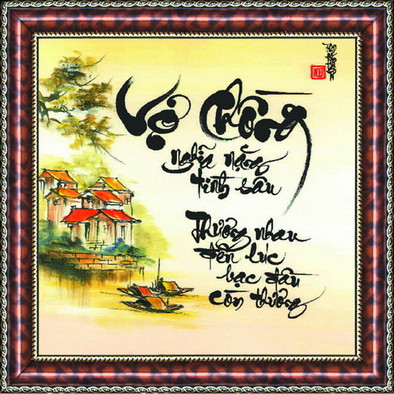 Vợ Chồng
nghĩa nặng
tình sâu
Thương nhau
đến lúc
bạc đầu
còn thương